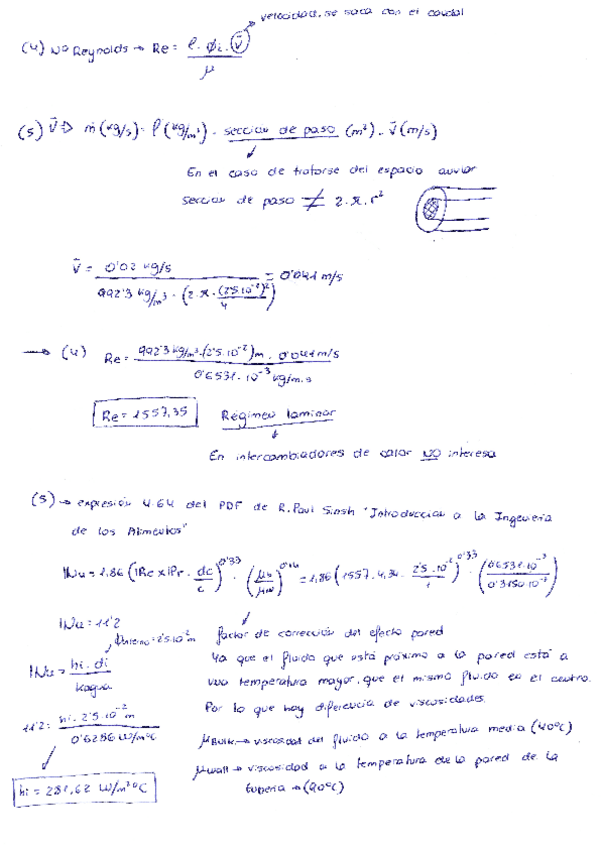 velocidad, se saca con el caudal
(4) Nº Reynolds → Re = ρ · Φi · v̄ / μ
(5) v̄ → ṁ (kg/s) = ρ (kg/m³) · sección de paso (m²) · v̄ (m/s)
En el caso de tratarse del espacio anular
sección de paso ≠ 2·π·r²
v̄ = 0'02 kg/s / 992'3 kg/m³ · (2·π·(2'5·10⁻²)²/4) = 0'041 m/s
→ (4) Re = 992'3 kg/m³·(2'5·10⁻²)m · 0'041 m/s / 0'6531·10⁻³ kg/m·s
Re = 1557,35 Régimen laminar
En intercambiadores de calor NO interesa
(5) → expresión 4.64 del PDF de R. Paul Sinsh "Introducción a la Ingeniería
de los Alimentos"
INu = 1,86 (IRe x IPr · dc/c)^0'33 · (μb/μw)^0'14 = 1,86 (1557 · 4,34 · 2'5·10⁻²/1)^0'33 · (0'6531·10⁻³/0'3150·10⁻³)
INu = 11'2
Φinterno = 2'5·10⁻² m
factor de corrección del efecto pared
INu = hi · di / kagua
Ya que el fluido que está próximo a la pared está a
una temperatura mayor, que el mismo fluido en el centro.
Por lo que hay diferencia de viscosidades.
11'2 = hi · 2'5·10⁻² m / 0'6286 W/mºC
μBulk → viscosidad del fluido a la temperatura media (40ºC)
μwall → viscosidad a la temperatura de la pared de la
tubería → (90ºC)
hi = 281,62 W/m²ºC